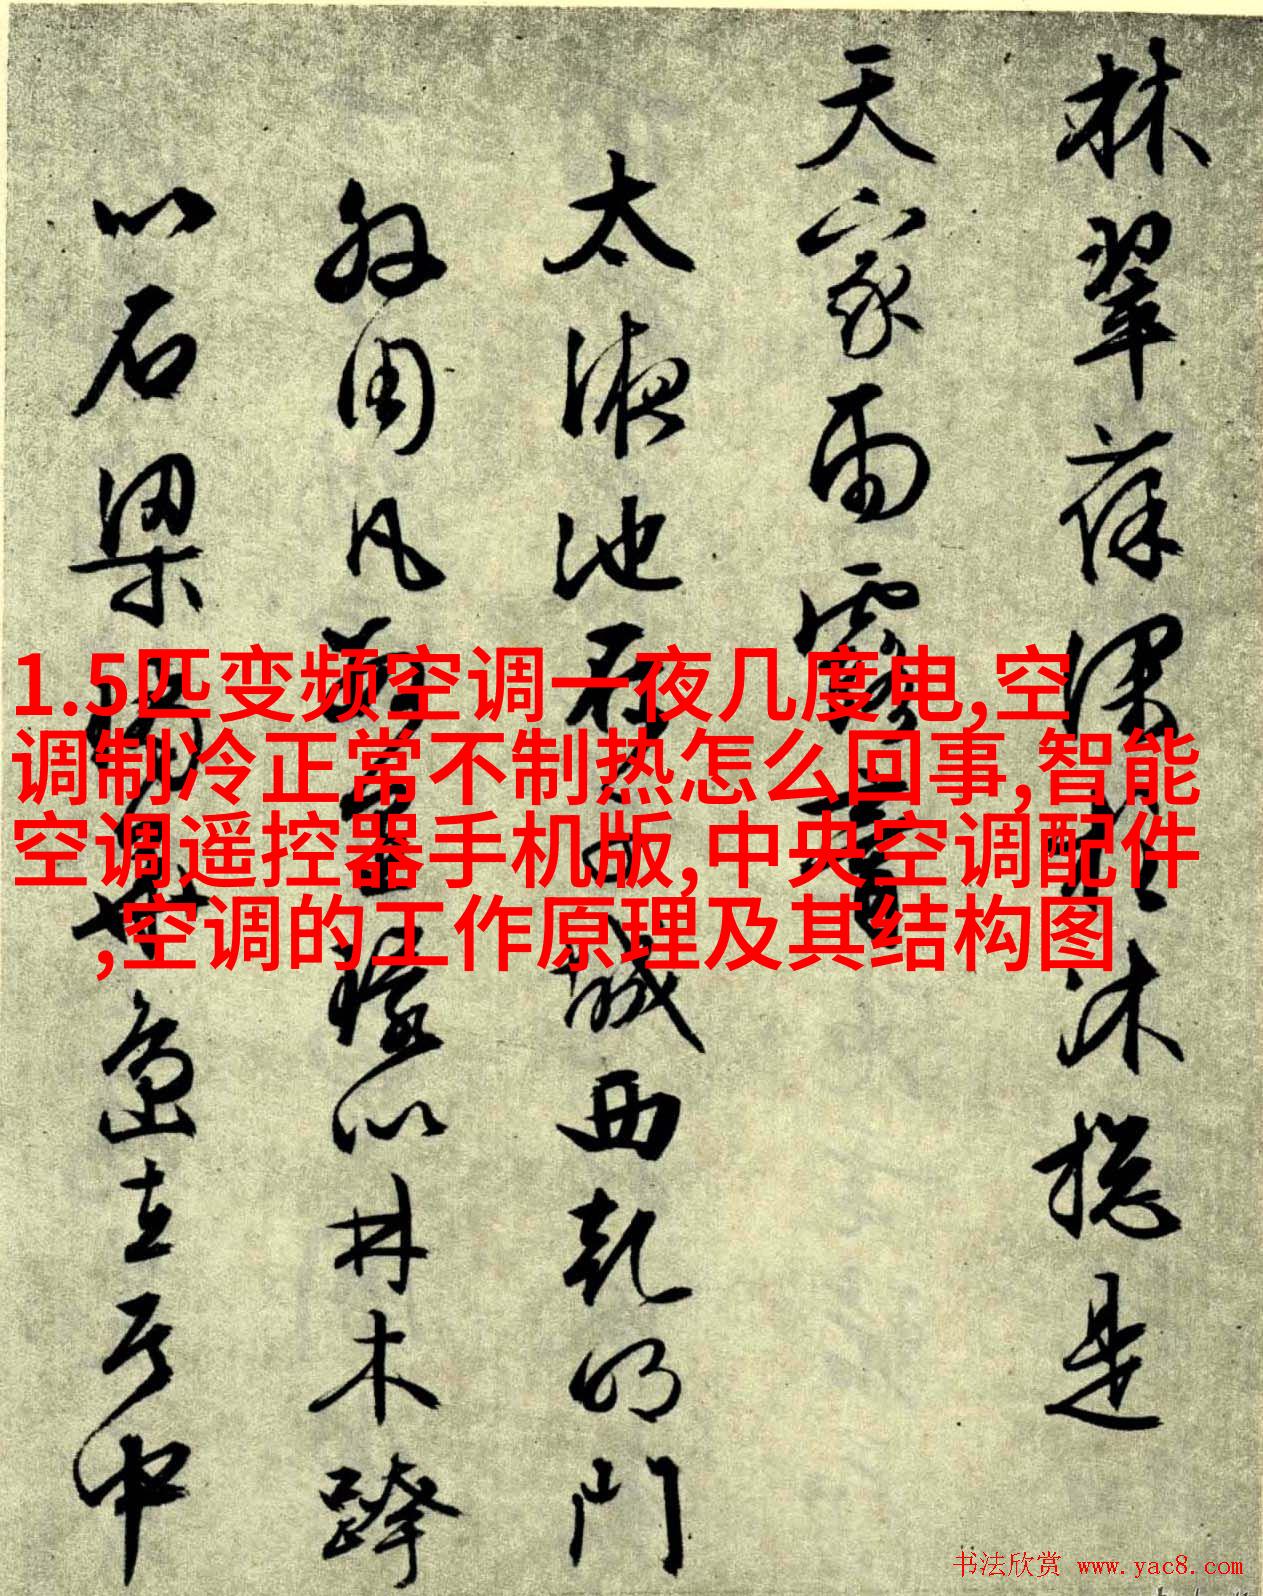 林翠葆深沐總是
天家雨露
太液池在子城西乾明門
外周凡數里環以林木跨
以石梁島立其中
1.5匹变频空调一夜几度电,空
调制冷正常不制热怎么回事,智能
空调遥控器手机版,中央空调配件
,空调的工作原理及其结构图
书法欣赏 www.yac8.com